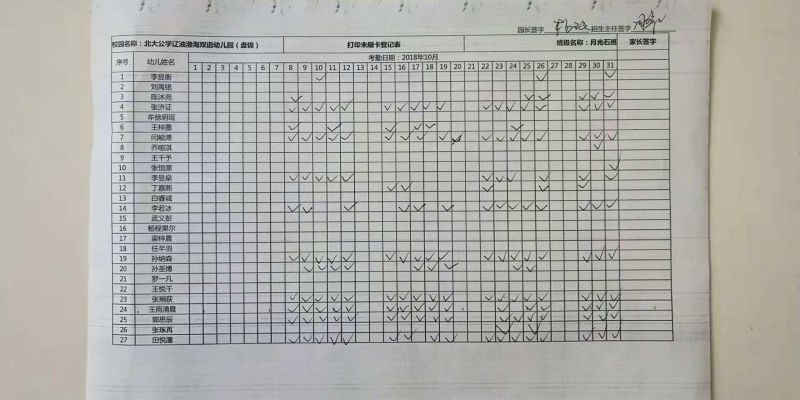 园长签字 招生主任签字
校园名称：北大公学辽油渤海双语幼儿园（盘锦） 打印未刷卡登记表 班级名称：月光石班 家长签字
考勤日期：2018年10月
序号 幼儿姓名 1 2 3 4 5 6 7 8 9 10 11 12 13 14 15 16 17 18 19 20 21 22 23 24 25 26 27 28 29 30 31
1 李昱衡 ✓ ✓ ✓
2 刘禹锯
3 陈沐尧 ✓ ✓ ✓ ✓ ✓ ✓
4 张济证 ✓ ✓ ✓ ✓ ✓ ✓ ✓ ✓ ✓ ✓ ✓ ✓ ✓ ✓ ✓ ✓ ✓ ✓
5 牟徐玥瑶
6 王梓墨 ✓ ✓ ✓ ✓ ✓ ✓
7 闫峻溥 ✓ ✓ ✓ ✓ ✓ ✓ ✓ ✓ ✓ ✓ ✓ ✓ ✓ ✓ ✓ ✓ ✓ ✓
8 乔暄淇 ✓
9 王千予
10 张恒源 ✓
11 李昱燊 ✓ ✓ ✓ ✓ ✓ ✓ ✓ ✓ ✓ ✓ ✓
12 丁嘉熙 ✓ ✓ ✓ ✓ ✓
13 白睿诚
14 李若冰 ✓ ✓ ✓ ✓ ✓ ✓ ✓ ✓ ✓ ✓ ✓ ✓ ✓ ✓
15 武义彭
16 杨程果尔
17 梁梓晨
18 任芊羽
19 孙纳森 ✓ ✓ ✓ ✓ ✓ ✓ ✓ ✓ ✓ ✓ ✓ ✓ ✓ ✓ ✓ ✓ ✓ ✓
20 孙圣博 ✓ ✓ ✓ ✓ ✓ ✓ ✓ ✓ ✓ ✓
21 罗一凡
22 王悦千
23 张宛荻 ✓ ✓ ✓ ✓ ✓ ✓ ✓ ✓ ✓ ✓ ✓ ✓ ✓ ✓ ✓ ✓ ✓ ✓
24 王雨清晨 ✓ ✓ ✓ ✓ ✓ ✓ ✓ ✓ ✓ ✓ ✓ ✓ ✓ ✓ ✓ ✓ ✓ ✓
25 郭思辰 ✓ ✓ ✓ ✓ ✓ ✓ ✓ ✓ ✓ ✓ ✓ ✓ ✓ ✓ ✓ ✓ ✓
26 张琢苒 ✓ ✓
27 田悦潼 ✓ ✓ ✓ ✓ ✓ ✓ ✓ ✓ ✓ ✓ ✓ ✓ ✓ ✓ ✓ ✓ ✓